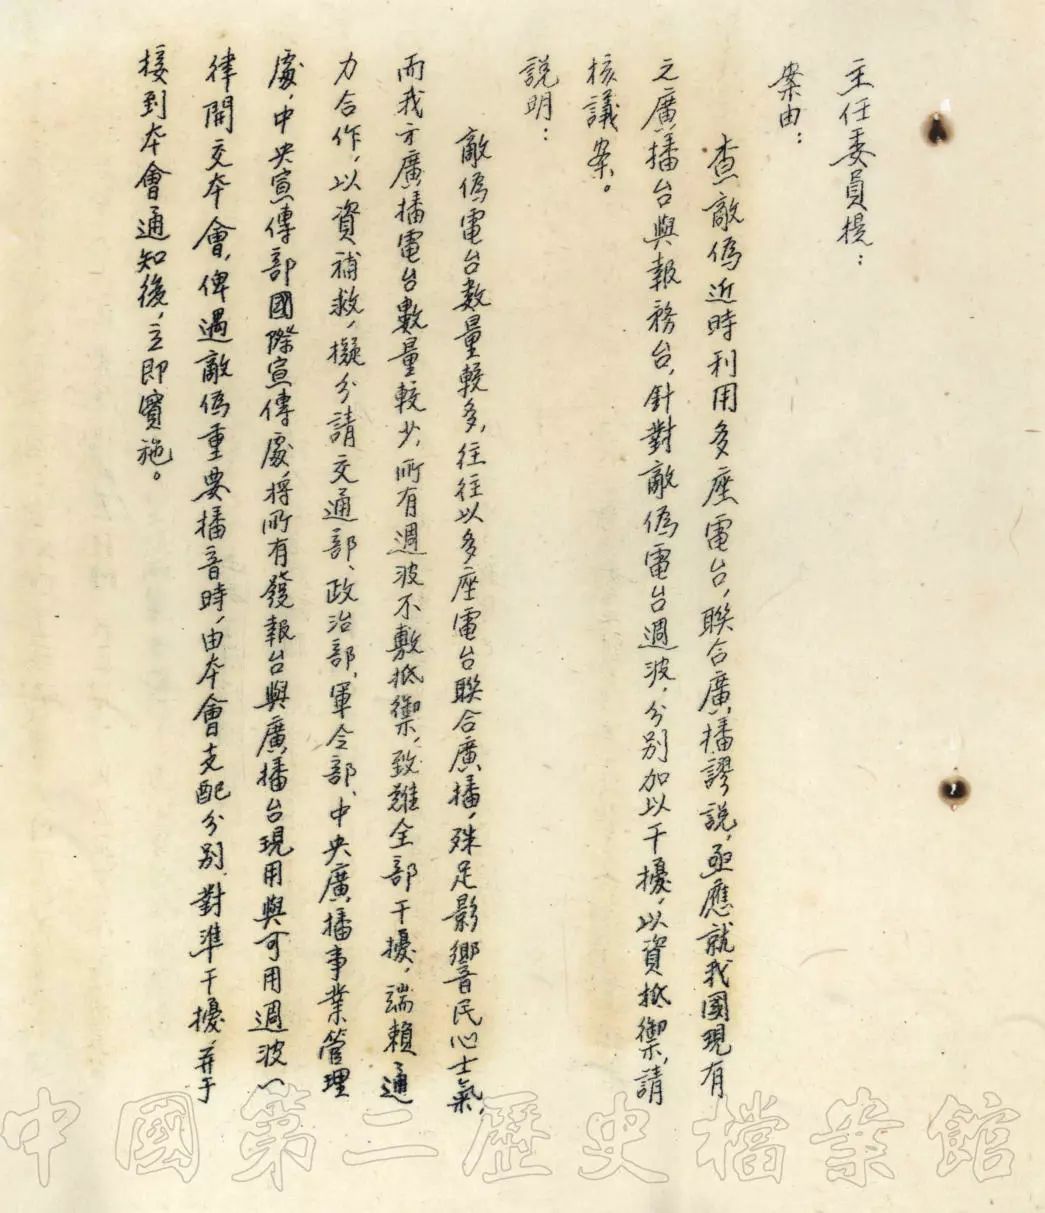 主任委員提：
案由：
查敵偽近時利用多座電台，聯合廣播謬說，亟應就我國現有
之廣播台與報務台，針對敵偽電台週波，分別加以干擾，以資抵禦，請
核議案。
說明：
敵偽電台數量較多，往往以多座電台聯合廣播，殊足影響民心士氣，
而我方廣播電台數量較少，所有週波不敷抵禦，致難全部干擾，端賴通
力合作，以資補救，擬分請交通部、政治部、軍令部、中央廣播事業管理
處，中央宣傳部國際宣傳處，將所有發報台與廣播台現用與可用週波一
律開交本會，俾遇敵偽重要播音時，由本會支配分別，對準干擾，并于
接到本會通知後，立即實施。
中國第二歷史檔案館